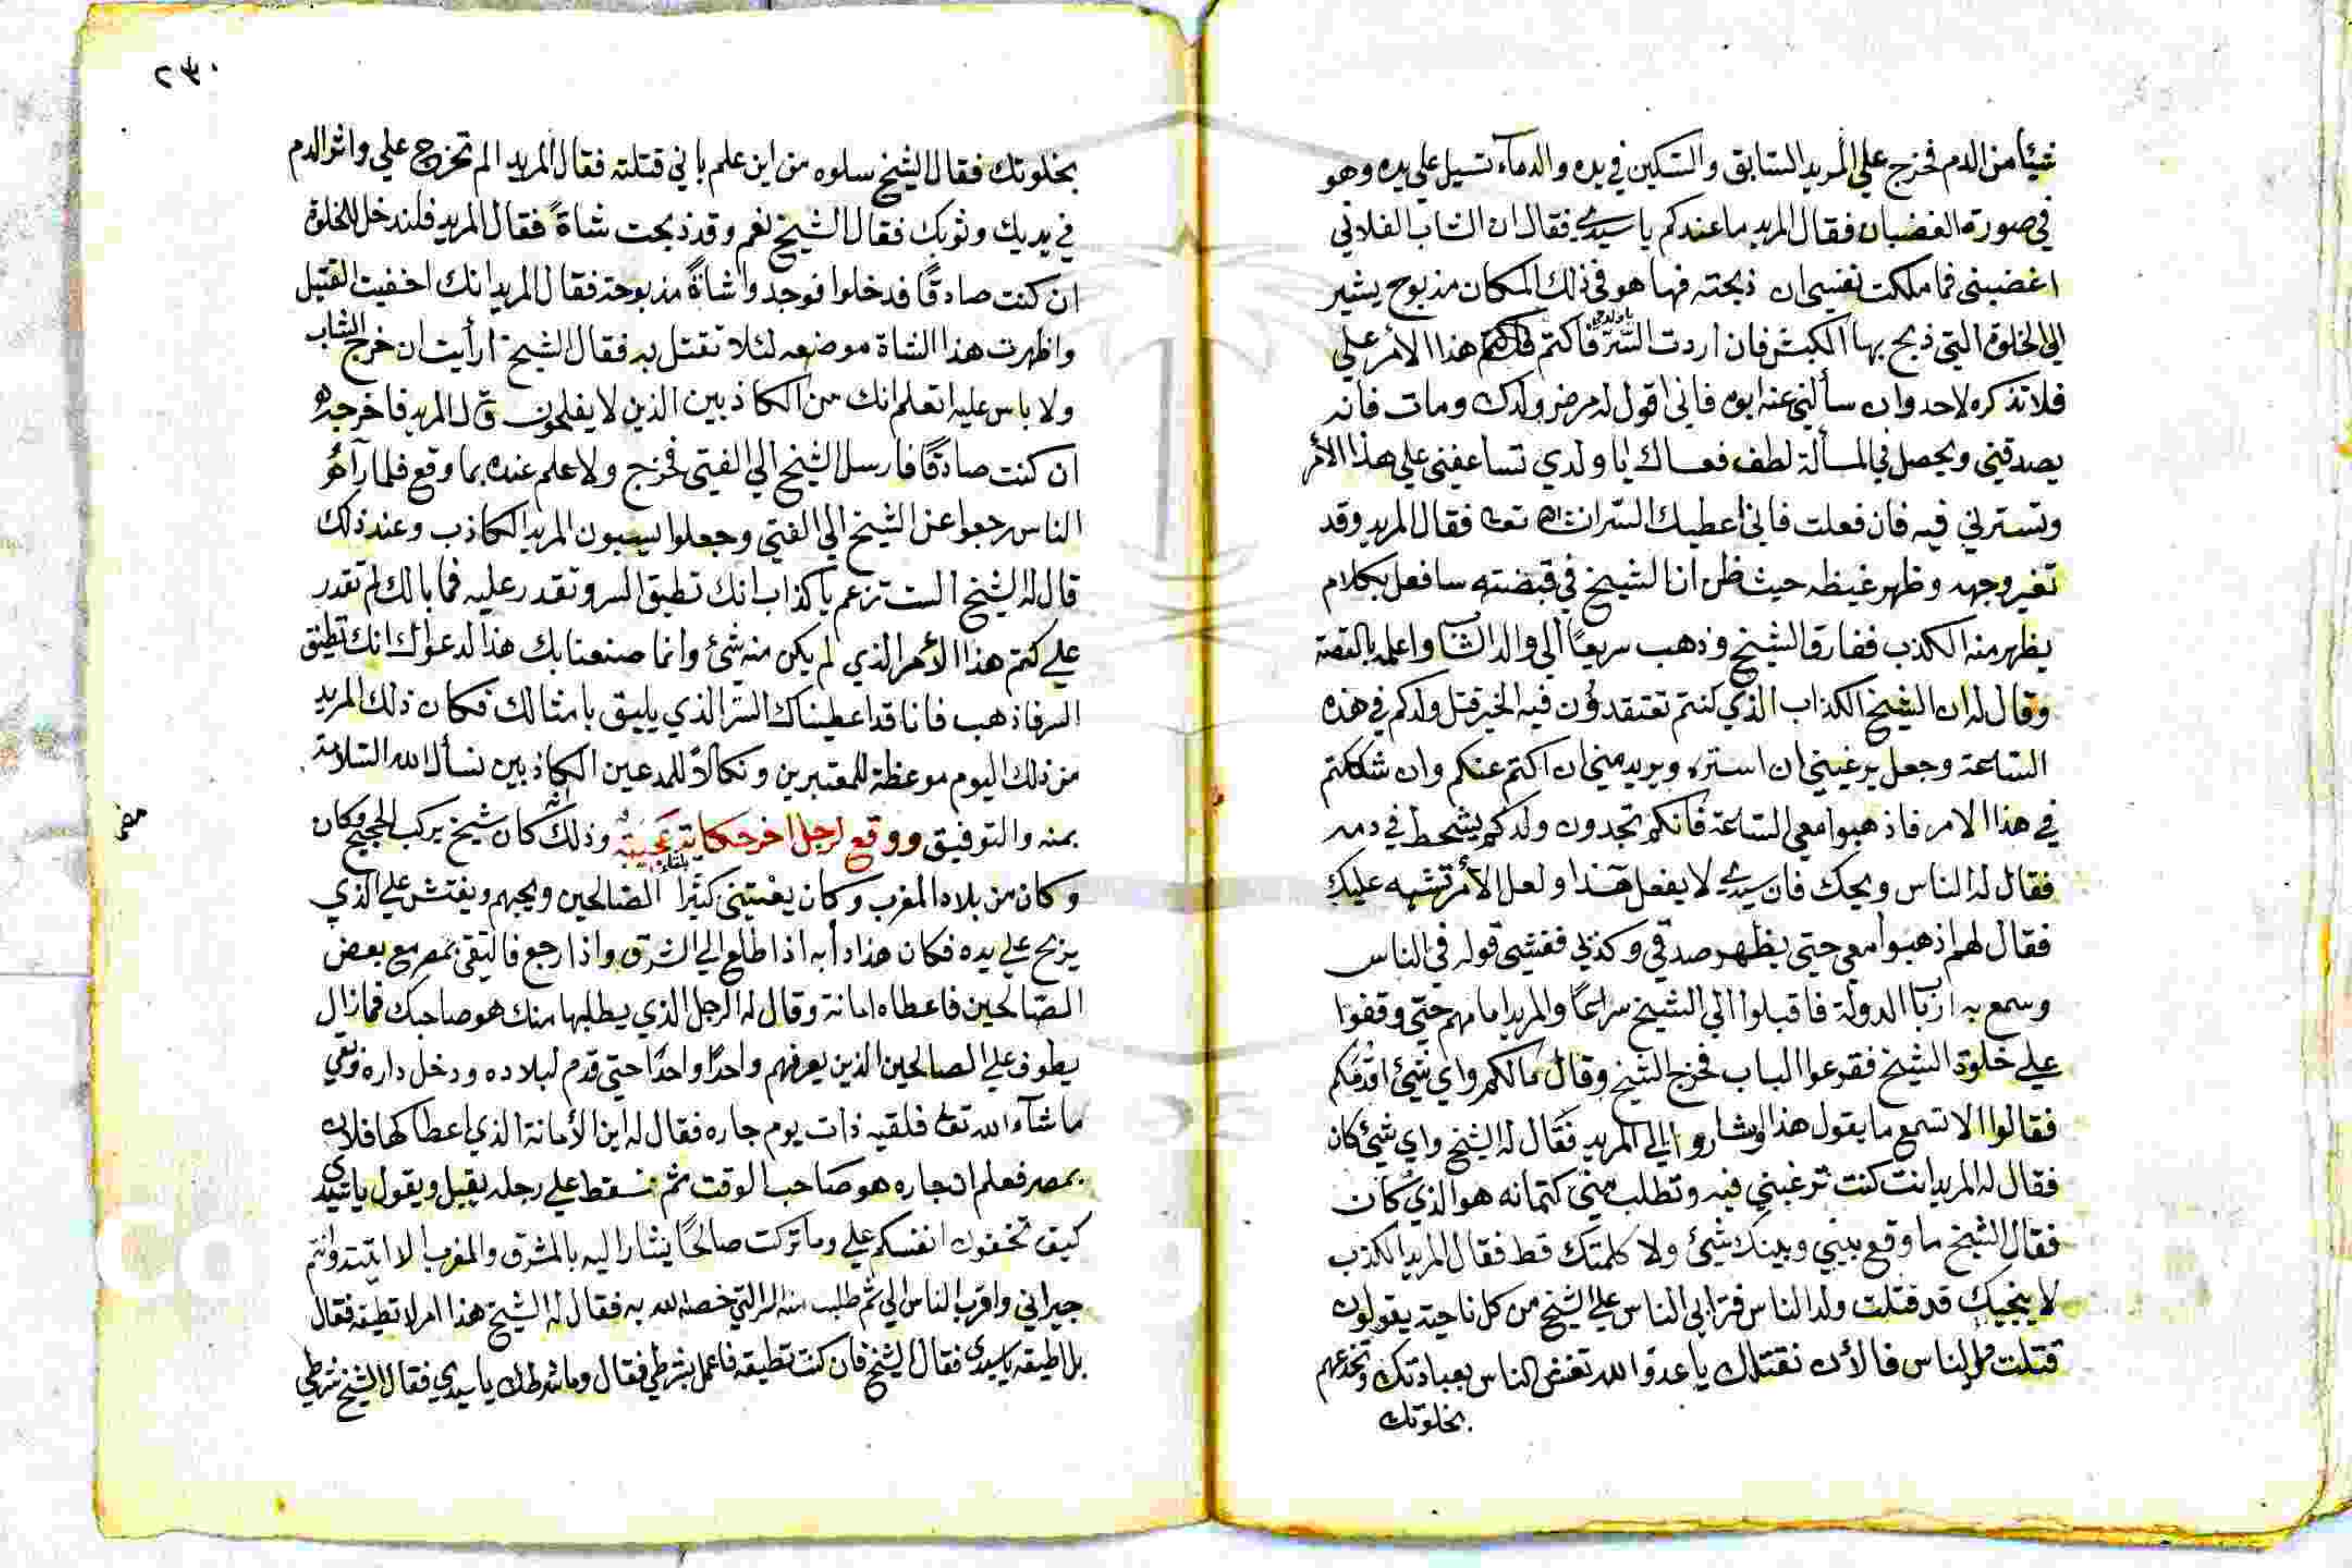 شيئا من الدم فخرج علي المريد السابق والسكين في يده والدماء تسيل علي يده وهو
في صورة الغضبان فقال المريد ما عندكم يا سيدي فقال ان الشاب الفلاني
اغضبني فما ملكت نفسي ان ذبحته فها هو في ذلك المكان مذبوح يشير
الي الخلوة التي ذبح بها الكبش فان اردت السر يا ولدي فاكتم هذا الأمر علي
فلا تذكره لاحد وان سألني عنه ابوه فاني اقول له مرض ولدك ومات فانه
يصدقني ويحصل في المسألة لطف فعساك يا ولدي تساعفني علي هذا الأمر
وتسترني فيه فان فعلت فاني أعطيك السر ان شاء الله تعا فقال المريد وقد
تغير وجهه وظهر غيظه حيث ظن ان الشيخ في قبضته سافعل بكلام
يظهر منه الكذب ففارق الشيخ وذهب سريعا الي والد الشاب واعلمه بالقصة
وقال له ان الشيخ الكذاب الذي كنتم تعتقدون فيه الخير قتل ولدكم في هذه
الساعة وجعل يرغبني ان استره ويريد مني ان اكتم عنكم وان شككتم
في هذا الامر فاذهبوا معي الساعة فانكم تجدون ولدكم يشحط في دمه
فقال له الناس ويحك فان سيدي لا يفعل هذا ولعل الأمر تشبه عليك
فقال لهم اذهبوا معي حتي يظهر صدقي وكذبي ففشى قوله في الناس
وسمع به ارباب الدولة فاقبلوا الي الشيخ سراعا والمريد امامهم حتي وقفوا
علي خلوة الشيخ فقرعوا الباب فخرج الشيخ وقال مالكم واي شيئ اقدمكم
فقالوا الا تسمع ما يقول هذا وشاروا الي المريد فقال له الشيخ واي شيئ كان
فقال له المريد انت كنت ترغبني فيه وتطلب مني كتمانه هو الذي كان
فقال الشيخ ما وقع بيني وبينك شيئ ولا كلمتك قط فقال المريد الكذب
لا ينجيك قد قتلت ولد الناس فترامي الناس علي الشيخ من كل ناحية يقولون
قتلت ولد الناس فالأن نقتلك يا عدو الله تغش الناس بعبادتك وتخدعهم
بخلوتك
٢٣٠
بخلوتك فقال الشيخ سلوه من اين علم باني قتلته فقال المريد الم تخرج علي واثر الدم
في يديك وثوبك فقال الشيخ نعم وقد ذبحت شاة فقال المريد فلندخل للخلوة
ان كنت صادقا فدخلوا فوجدوا شاة مذبوحة فقال المريد انك اخفيت القتيل
واظهرت هذا الشاة موضعه لئلا تقتل به فقال الشيخ ارأيت ان خرج الشاب
ولا باس عليه اتعلم انك من الكاذبين الذين لا يفلحون قال المريد فاخرجه
ان كنت صادقا فارسل الشيخ الي الفتي فخرج ولا علم عنده بما وقع فلما رآه
الناس رجعوا عن الشيخ الي الفتي وجعلوا يسبون المريد الكاذب وعند ذلك
قال له الشيخ الست تزعم يا كذاب انك تطيق السر وتقدر عليه فما بالك لم تقدر
علي كتم هذا الأمر الذي لم يكن منه شيئ وانما صنعنا بك هذا لدعواك انك تطيق
السر فاذهب فانا قد اعطيناك السر الذي يليق بامثالك فكان ذلك المريد
من ذلك اليوم موعظة للمعتبرين ونكالا للمدعين الكاذبين نسأل الله السلامة
بمنه والتوفيق ووقع لرجل اخر حكاية عجيبة وذلك انه كان شيخ يركب الحجيج وكان
وكان من بلاد المغرب وكان يعتني كثيرا بلقاء الصالحين ويحبهم ويفتش علي الذي
يربح علي يده فكان هذا دأبه اذا طلع الي الشرق واذا رجع فالتقى بمصر مع بعض
الصالحين فاعطاه امانة وقال له الرجل الذي يطلبها منك هو صاحبك فما زال
يطوف علي الصالحين الذين يعرفهم واحدا واحدا حتي قدم لبلاده ودخل داره وبقي
ما شاء الله تعا فلقيه ذات يوم جاره فقال له اين الأمانة الذي اعطاكها فلان
بمصر فعلم ان جاره هو صاحب الوقت ثم سقط علي رجله يقبل ويقول يا سيدي
كيف تخفون انفسكم علي وما تركت صالحا يشار اليه بالمشرق والمغرب الا اتيته وانتم
جيراني واقرب الناس الي ثم طلب منه السر التي خصه الله به فقال له الشيخ هذا امر لا تطيقه فقال
بل اطيقه يا سيدي فقال الشيخ فان كنت تطيقه فاعمل بشرطي فقال وما شرطك يا سيدي فقال الشيخ شرطي